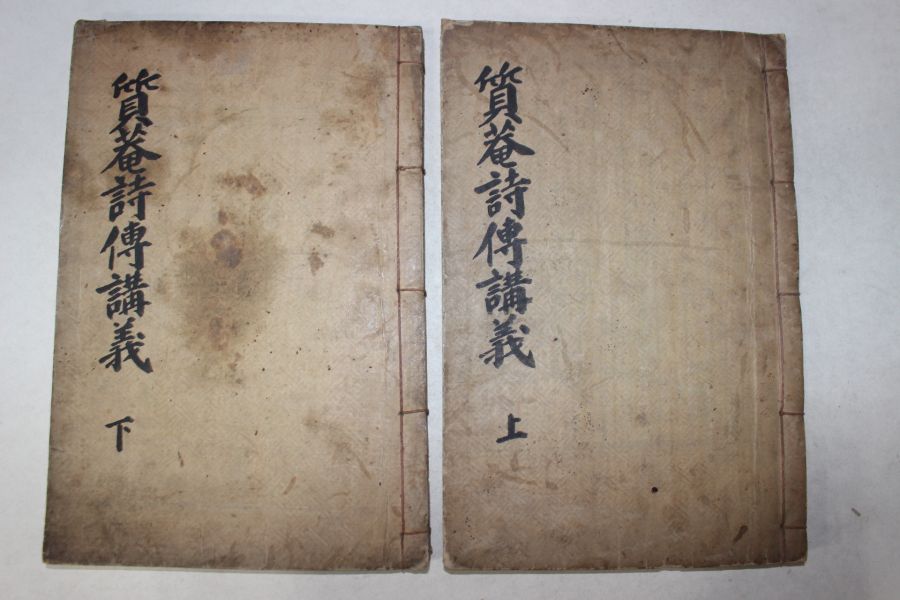 質菴詩傳講義
上
質菴詩傳講義
下